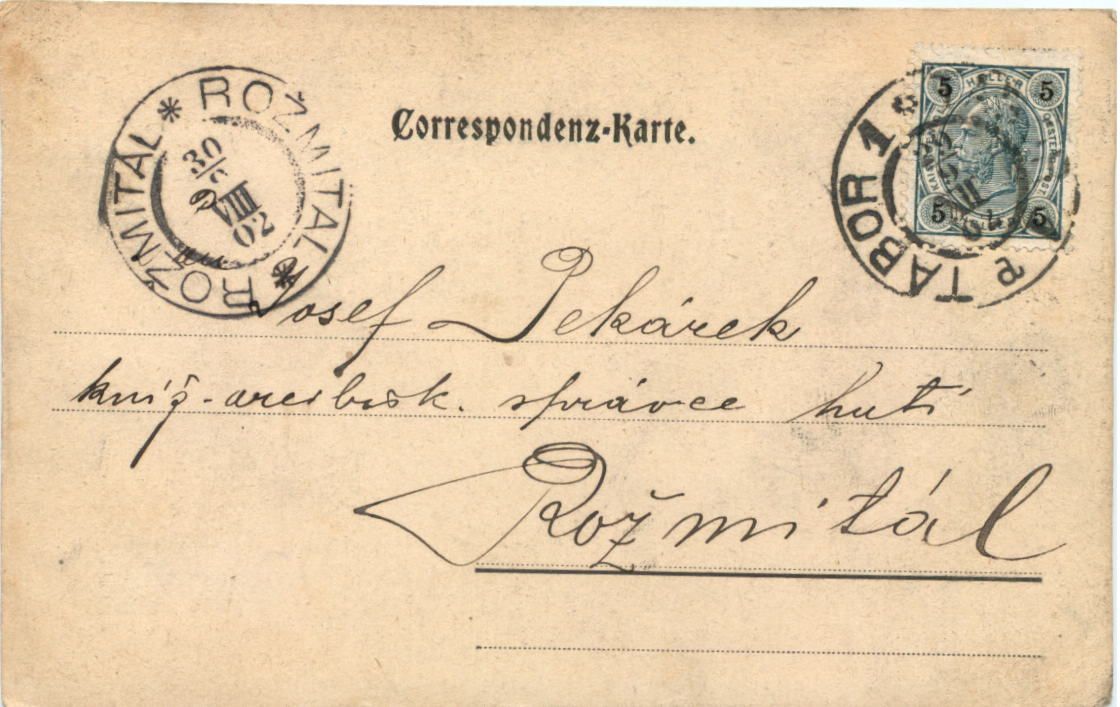 Correspondenz-Karte.
ROŽMITÁL * ROŽMITAL *
30
VIII
02
5 HELLER 5
5 5
TÁBOR 1
Josef Pekárek
kníž.-arcibisk. správce hutí
Rožmitál